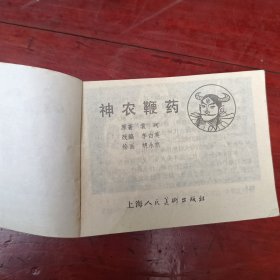 神农鞭药
原著 袁珂
改编 李白英
绘画 胡永凯
上海人民美術出版社